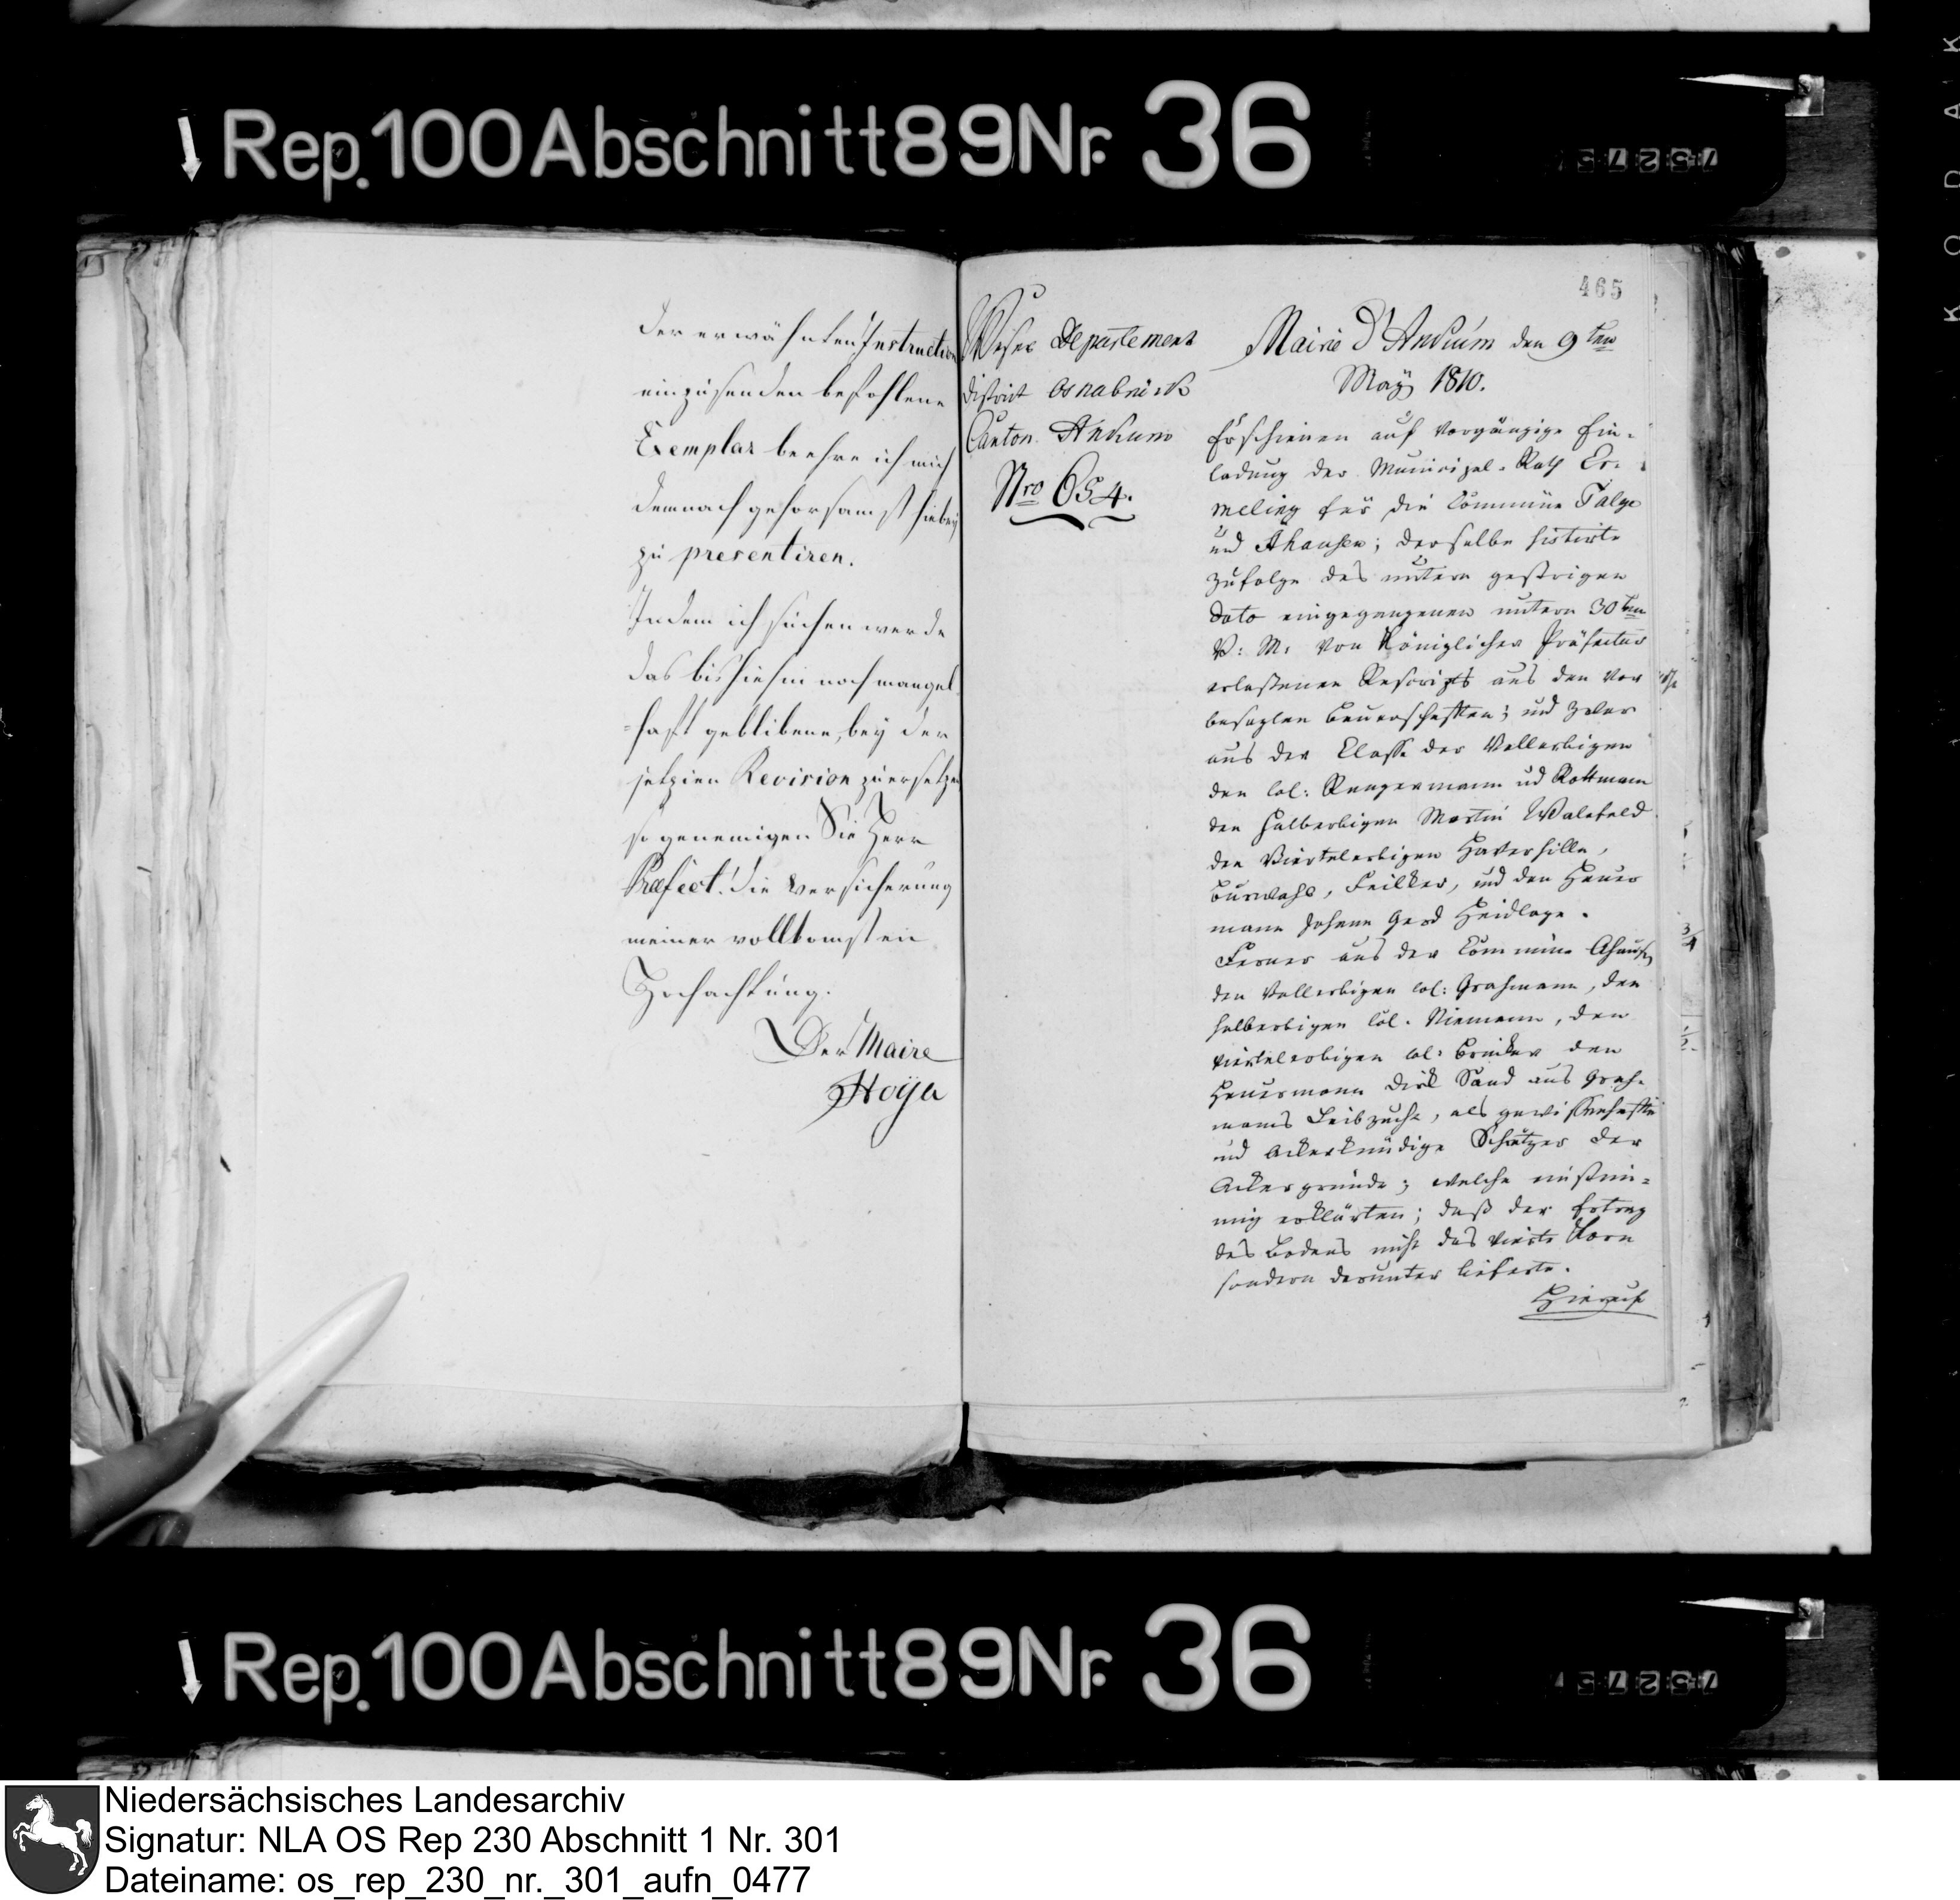 Rep.100Abschnitt89Nr. 36
KODAK
der erwähnten Instruction
einzusenden befohlene
Exemplar beehre ich mich
demnach gehorsamst hiebey
zu presentiren.
Indem ich suchen werde
das bishiehin noch mangel
=haft geblibene, bey der
jetzien Revision zu ersetzen
so genemigen Sie Herr
Präfect! die Versicherung
meiner vollkomsten
Hochachtung.
Der Maire
Hoya
465
Weser Departement
District Osnabrück
Canton Ankum
Nro 654.
Mairie d'Ankum den 9ten
May 1810.
Erschienen auf vorgängige Ein-
ladung der Municipal-Rath Er-
meling für die Commüne Talge
und Ahausen; derselbe sistirte
zufolge des untern gestrigen
Dato eingegangenen untern 30ten
V: M: von Königlicher Präfectur
erlaßenen Rescripts aus den vor
besagten Bauerschaften; und zwar
aus der Classe der Vollerbigen
den Col: Rangermann und Rottmann
den Halberbigen Martin Walefeld
den Viertelerbigen Haverhille,
Buswahl, Feilker, und den Heuer
mann Johann Gerd Heidlage.
Ferner aus der Commüne Ahausen
den Vollerbigen Col: Grahmann, den
halberbigen Col. Niemann, den
viertelerbigen Col: Brinker den
Heuermann Dirk Sand aus Grah-
manns Leibzucht, als gewissenhafte
und Ackerkundige Schätzer der
Ackergründe; welche einstim-
mig erklärten; daß der Ertrag
des Bodens nicht das vierte Korn
sondern darunter lieferte.
Hierauf
3/4
1/2
Rep.100Abschnitt89Nr. 36
Niedersächsisches Landesarchiv
Signatur: NLA OS Rep 230 Abschnitt 1 Nr. 301
Dateiname: os_rep_230_nr._301_aufn_0477